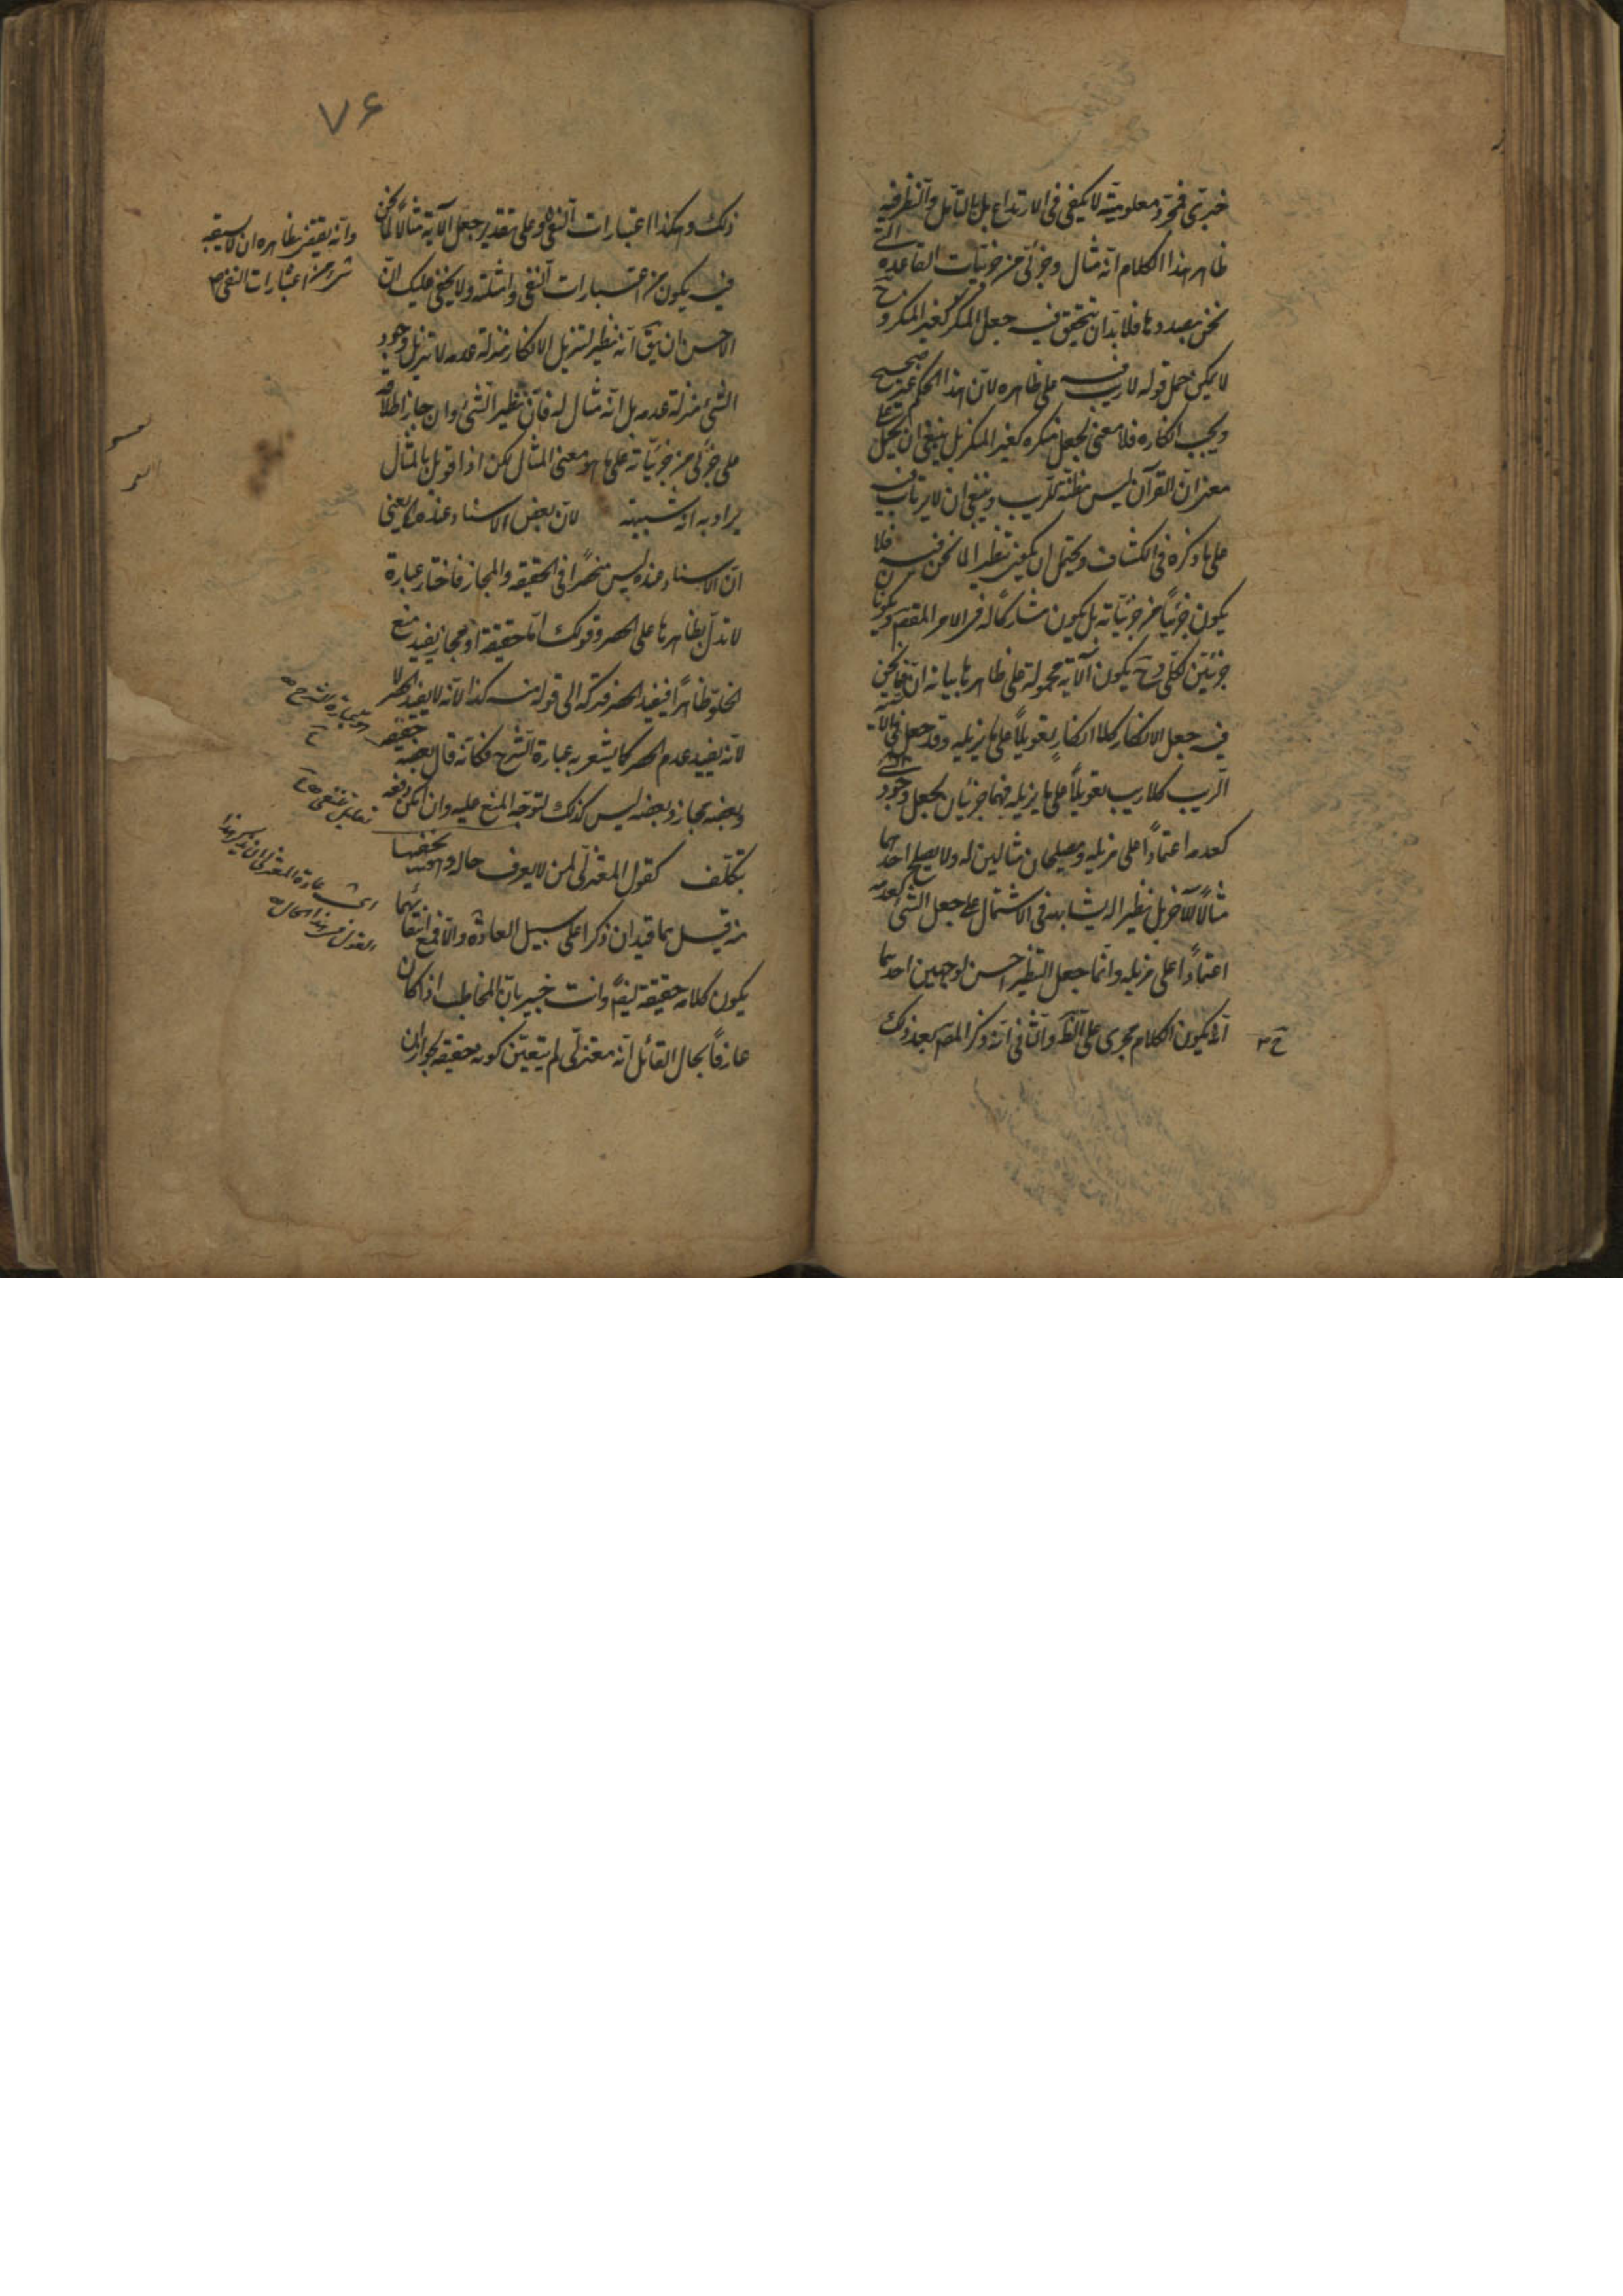 خبرى فمجرد معلوميته لا يكفى فى الارتداع بل بالتأمل والنظر فيه
ظاهر هذا الكلام انه مثال وجزئى من جزئيات القاعدة التى
نحن بصددها فلا بد ان يتحقق فيه جعل المنكر كغير المنكر وح
لا يمكن حمل قوله لا ريب فيه على ظاهره لان هذا الحكم غير صحيح
ويجب انكاره فلا معنى لجعل منكره كغير المنكر بل ينبغى ان يحمل على
معنى ان القرآن ليس مظنة للريب وينبغى ان لا يرتاب فيه
على ما ذكره فى الكشاف ويحتمل ان يكون نظيرا لما نحن فيه فلا
يكون جزئيا من جزئياته بل يكون مشاركا له فى الامر المقصم ويكونا
جزئيين لكلى وح يكون الآية محمولة على ظاهرها بيانه ان ما نحن
فيه جعل الانكار كلا انكار تعويلا على ما يزيله وقد جعل فى الآية
الريب كلا ريب تعويلا على ما يزيله فهما جزئيان لجعل وجود الشئ
كعدمه اعتمادا على مزيله ويصلحان مثالين له ولا يصلح احدهما
مثالا للآخر بل نظيرا له يشابهه فى الاشتمال على جعل الشئ كعدمه
اعتمادا على مزيله وانما جعل التنظير احسن لوجهين احدهما
انه يكون الكلام مجرى على الظ والثانى انه ذكر المصم بعد ذلك
٧۶
ذلك وهكذا اعتبارات النفى وعلى تقدير جعل الآية مثالا لما نحن
فيه يكون من اعتبارات النفى وامثلته ولا يخفى عليك ان
الاحسن ان يق انه نظير لتنزيل الانكار منزلة عدمه لا تنزيل وجود
الشئ منزلة عدمه بل انه مثال له فان نظير الشئ وان جاز اطلاقه
على جزئى من جزئياته على ما هو معنى المثال لكن اذا قوبل بالمثال
يراد به انه شبيهه لان بعض الاسناد عنده يعنى
ان الاسناد عنده ليس منحصرا فى الحقيقة والمجاز فاختار عبارة
لا تدل بظاهرها على الحصر وقولك اما حقيقة او مجاز يفيد منع
الخلو ظاهرا فيفيد الحصر فتركه الى قوله منه كذا لانه لا يفيد الحصر لا
لانه يفيد عدم الحصر كما يشعر به عبارة الشرح فكانه قال بعضه حقيقة
وبعضه مجاز وبعضه ليس كذلك لتوجه المنع عليه وان امكن دفعه
بتكلف كقول المعتزلى لمن لا يعرف حاله وهو يخفيها
منه قيل هما قيدان ذكرا على سبيل العادة والا فمع انتفائهما
يكون كلامه حقيقة ايضم وانت خبير بان المخاطب اذا كان
عارفا بحال القائل انه معتزلى لم يتعين كونه حقيقة لجواز ان
وانه يقتضى بظاهره ان لا يسبقه
شئ من اعتبارات النفى